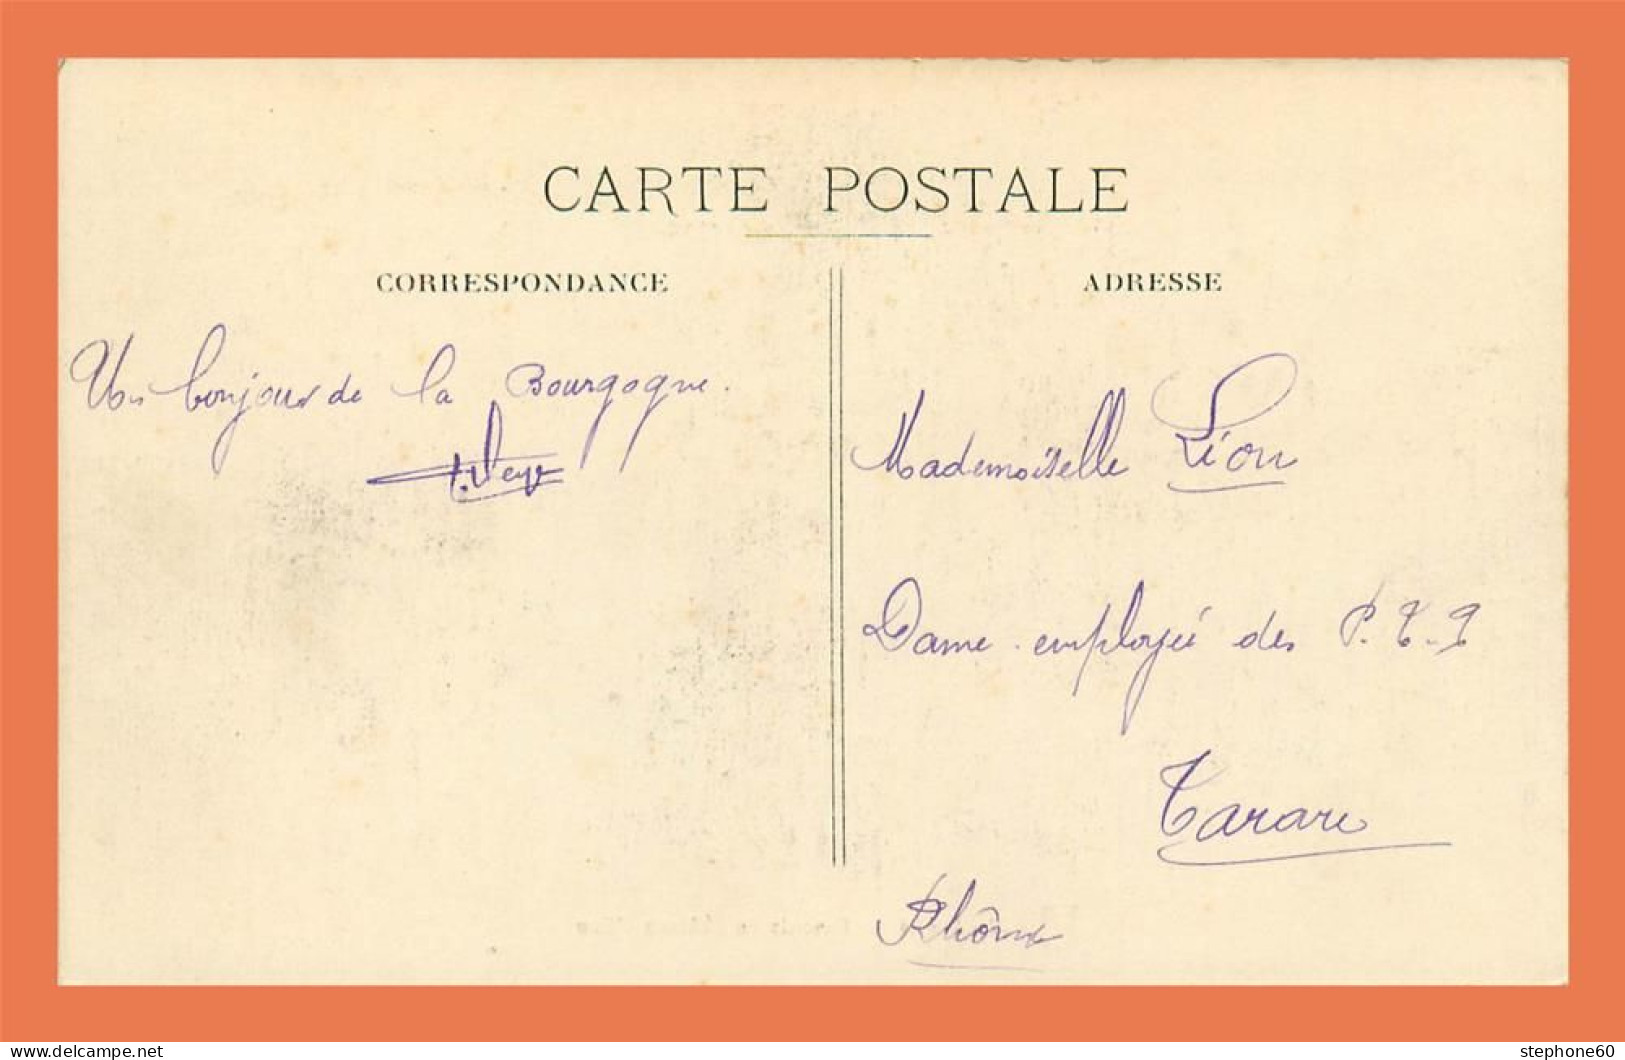 CARTE POSTALE
CORRESPONDANCE
ADRESSE
Un bonjour de la Bourgogne.
Mademoiselle Léon
Dame employée des P.T.T
Tarare
Rhône
delcampe.net
stephone60